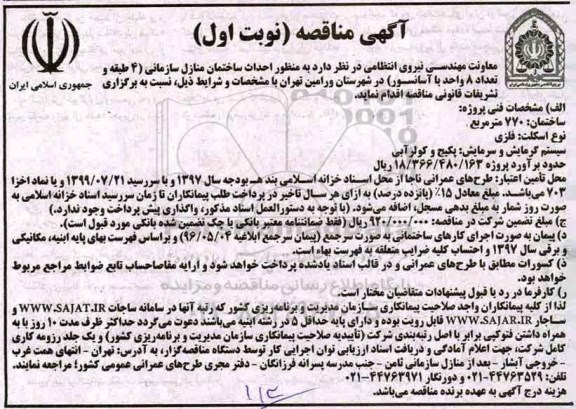 آگهی مناقصه (نوبت اول)
جمهوری اسلامی ایران
معاونت مهندسی نیروی انتظامی در نظر دارد به منظور احداث ساختمان منازل سازمانی (۴ طبقه و
تعداد ۸ واحد با آسانسور) در شهرستان ورامین تهران با مشخصات و شرایط ذیل، نسبت به برگزاری
تشریفات قانونی مناقصه اقدام نماید.
الف) مشخصات فنی پروژه:
ساختمان: ۷۷۰ مترمربع
نوع اسکلت: فلزی
سیستم گرمایش و سرمایش: پکیج و کولر آبی
حدود برآورد پروژه ۱۸/۳۶۶/۴۸۰/۱۶۳ ریال
محل تأمین اعتبار: طرح‌های عمرانی ناجا از محل اسناد خزانه اسلامی بند هـ بودجه سال ۱۳۹۷ و با سررسید ۱۳۹۹/۰۷/۲۱ و با نماد اخزا
۷۰۳ می‌باشد. مبلغ معادل ۱۵٪ (پانزده درصد) به ازای هر سال تأخیر در پرداخت طلب پیمانکاران تا زمان سررسید اسناد خزانه اسلامی به
صورت روز شمار به مبلغ بدهی مسجل، اضافه می‌شود. (با توجه به دستورالعمل اسناد مذکور، واگذاری پیش پرداخت وجود ندارد.)
ج) مبلغ تضمین شرکت در مناقصه: ۹۲۰/۰۰۰/۰۰۰ ریال (فقط ضمانتنامه معتبر بانکی یا چک تضمین شده بانکی مورد قبول است).
د) پیمان به صورت اجرای کارهای ساختمانی به صورت سرجمع (پیمان سرجمع ابلاغیه ۹۶/۰۵/۰۴) و براساس فهرست بهای پایه ابنیه، مکانیکی
و برقی سال ۱۳۹۷ و احتساب کلیه ضرایب متعلقه به فهرست بهاست.
ذ) کسورات مطابق با طرح‌های عمرانی و در قالب اسناد یادشده پرداخت خواهد شد و ارایه مفاصاحساب تابع ضوابط مراجع مربوط
خواهد بود.
ر) کارفرما در رد یا قبول پیشنهادات متقاضیان مختار است.
لذا از کلیه پیمانکاران واجد صلاحیت پیمانکاری سازمان مدیریت و برنامه‌ریزی کشور که رتبه آنها در سامانه ساجات WWW.SAJAT.IR و
ساجار WWW.SAJAR.IR قابل رویت بوده و دارای پایه حداقل ۵ در رشته ابنیه می‌باشند دعوت می‌گردد حداکثر ظرف مدت ۱۰ روز با به
همراه داشتن فتوکپی برابر با اصل رتبه‌بندی شرکت (تأییدیه صلاحیت پیمانکاری سازمان مدیریت و برنامه‌ریزی کشور) و یک جلد رزومه کاری
کامل شرکت، جهت اعلام آمادگی و دریافت اسناد ارزیابی توان اجرایی کار توسط دستگاه مناقصه‌گزار، به آدرس: تهران - انتهای همت غرب
- خروجی آبشار - بعد از منازل سازمانی ثامن - جنب مدرسه پسرانه فرزانگان - دفتر مجری طرح‌های عمرانی عمومی کشور؛ مراجعه نمایند.
تلفن: ۴۴۷۶۳۵۲۹-۰۲۱ و دورنگار ۴۴۷۶۳۹۷۱-۰۲۱
هزینه درج آگهی به عهده برنده مناقصه می‌باشد.